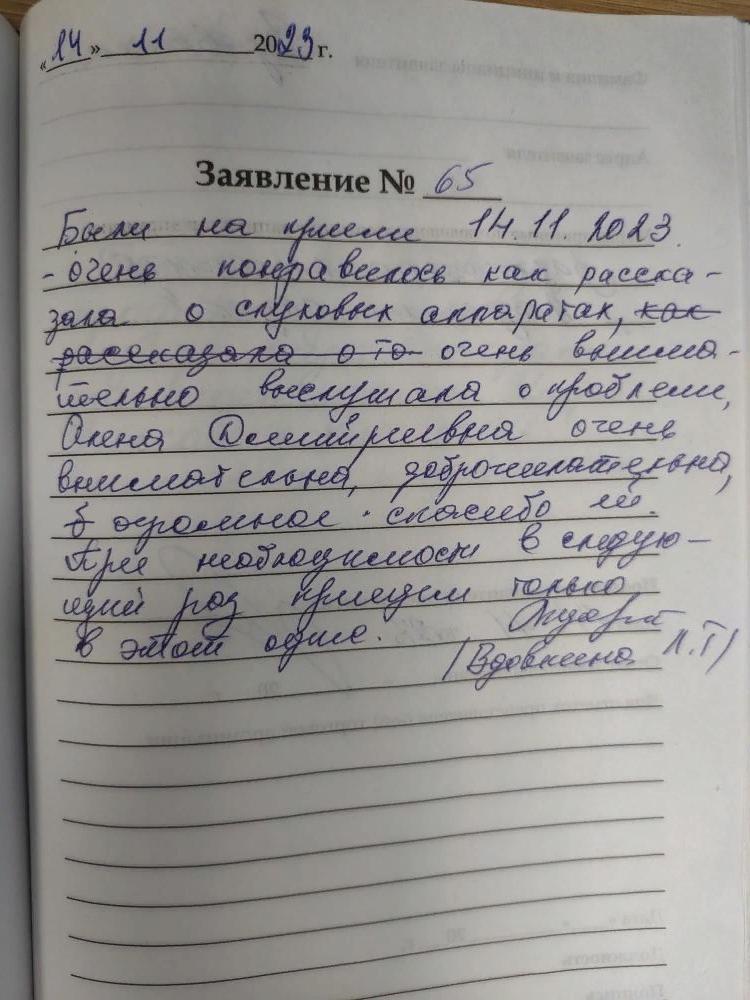 «14» 11 2023 г.
Заявление № 65
Были на приеме 14.11.2023.
- очень понравилось как расска-
зала о слуховых аппаратах, как
рассказала о то очень внима-
тельно выслушала о проблеме,
Олена Дмитриевна очень
внимательна, доброжелательна,
огромное спасибо ей.
При необходимости в следую-
щий раз приедем только
в этот офис.
/Вдовкина Л.Т/